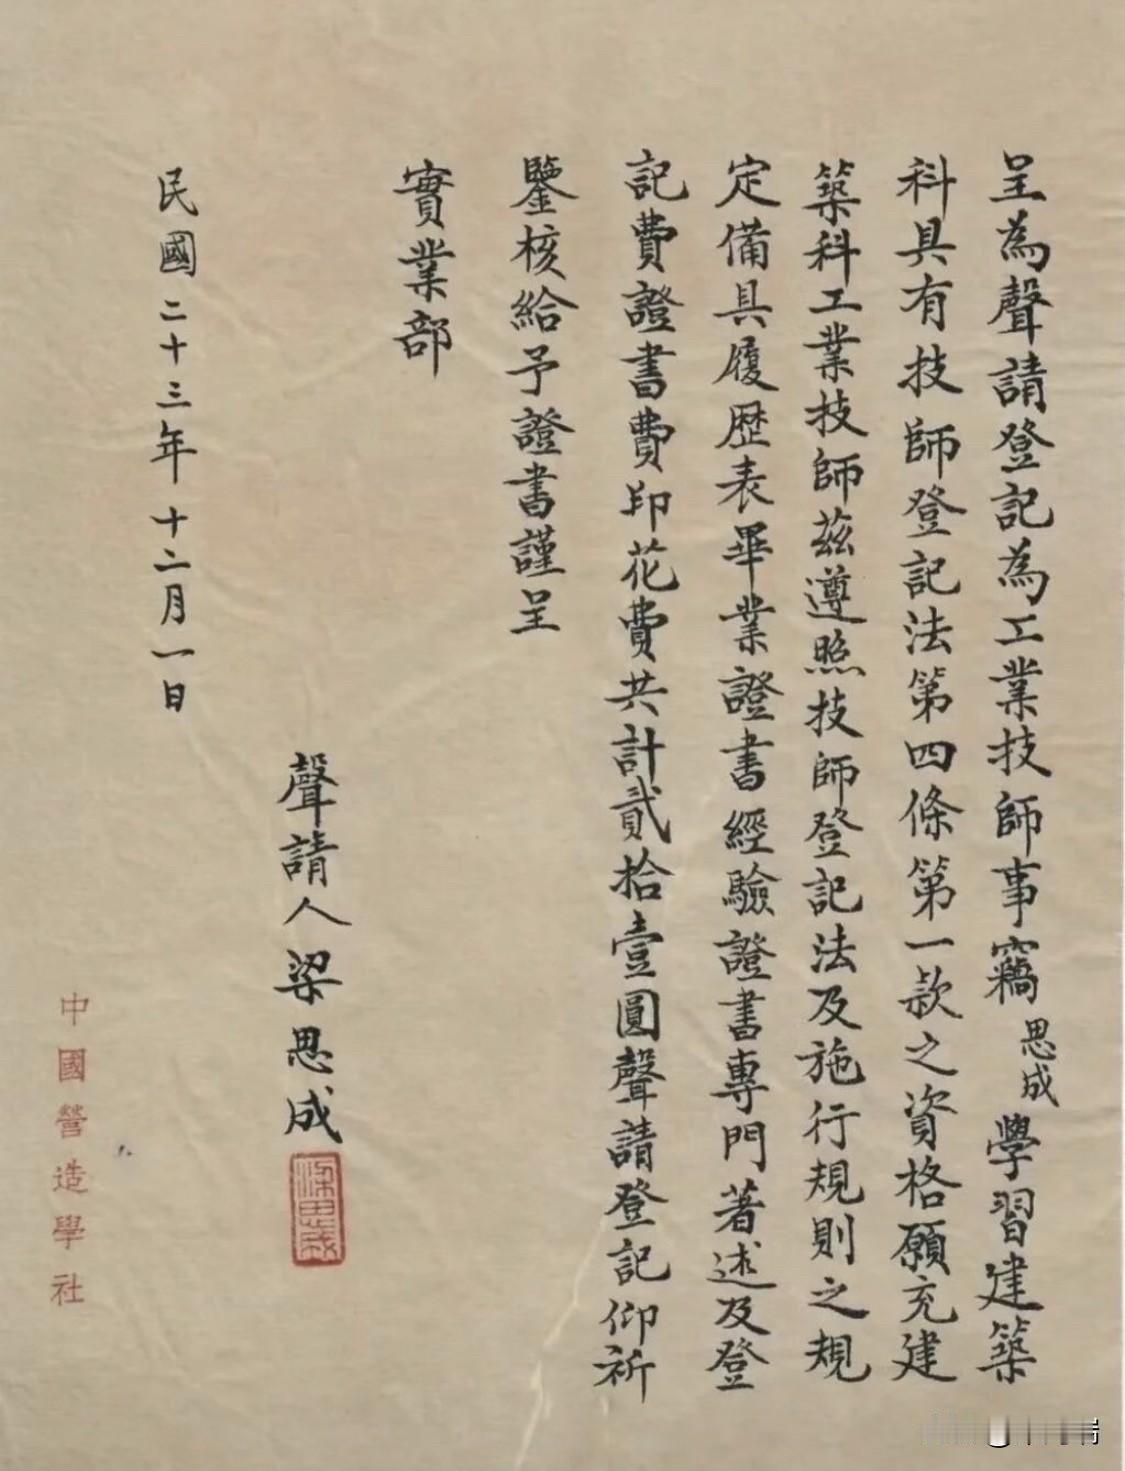 呈為聲請登記為工業技師事竊思成學習建築
科具有技師登記法第四條第一款之資格願充建
築科工業技師茲遵照技師登記法及施行規則之規
定備具履歷表畢業證書經驗證書專門著述及登
記費證書費印花費共計貳拾壹圓聲請登記仰祈
鑒核給予證書謹呈
實業部
聲請人梁思成
梁思成
民國二十三年十二月一日
中國營造學社